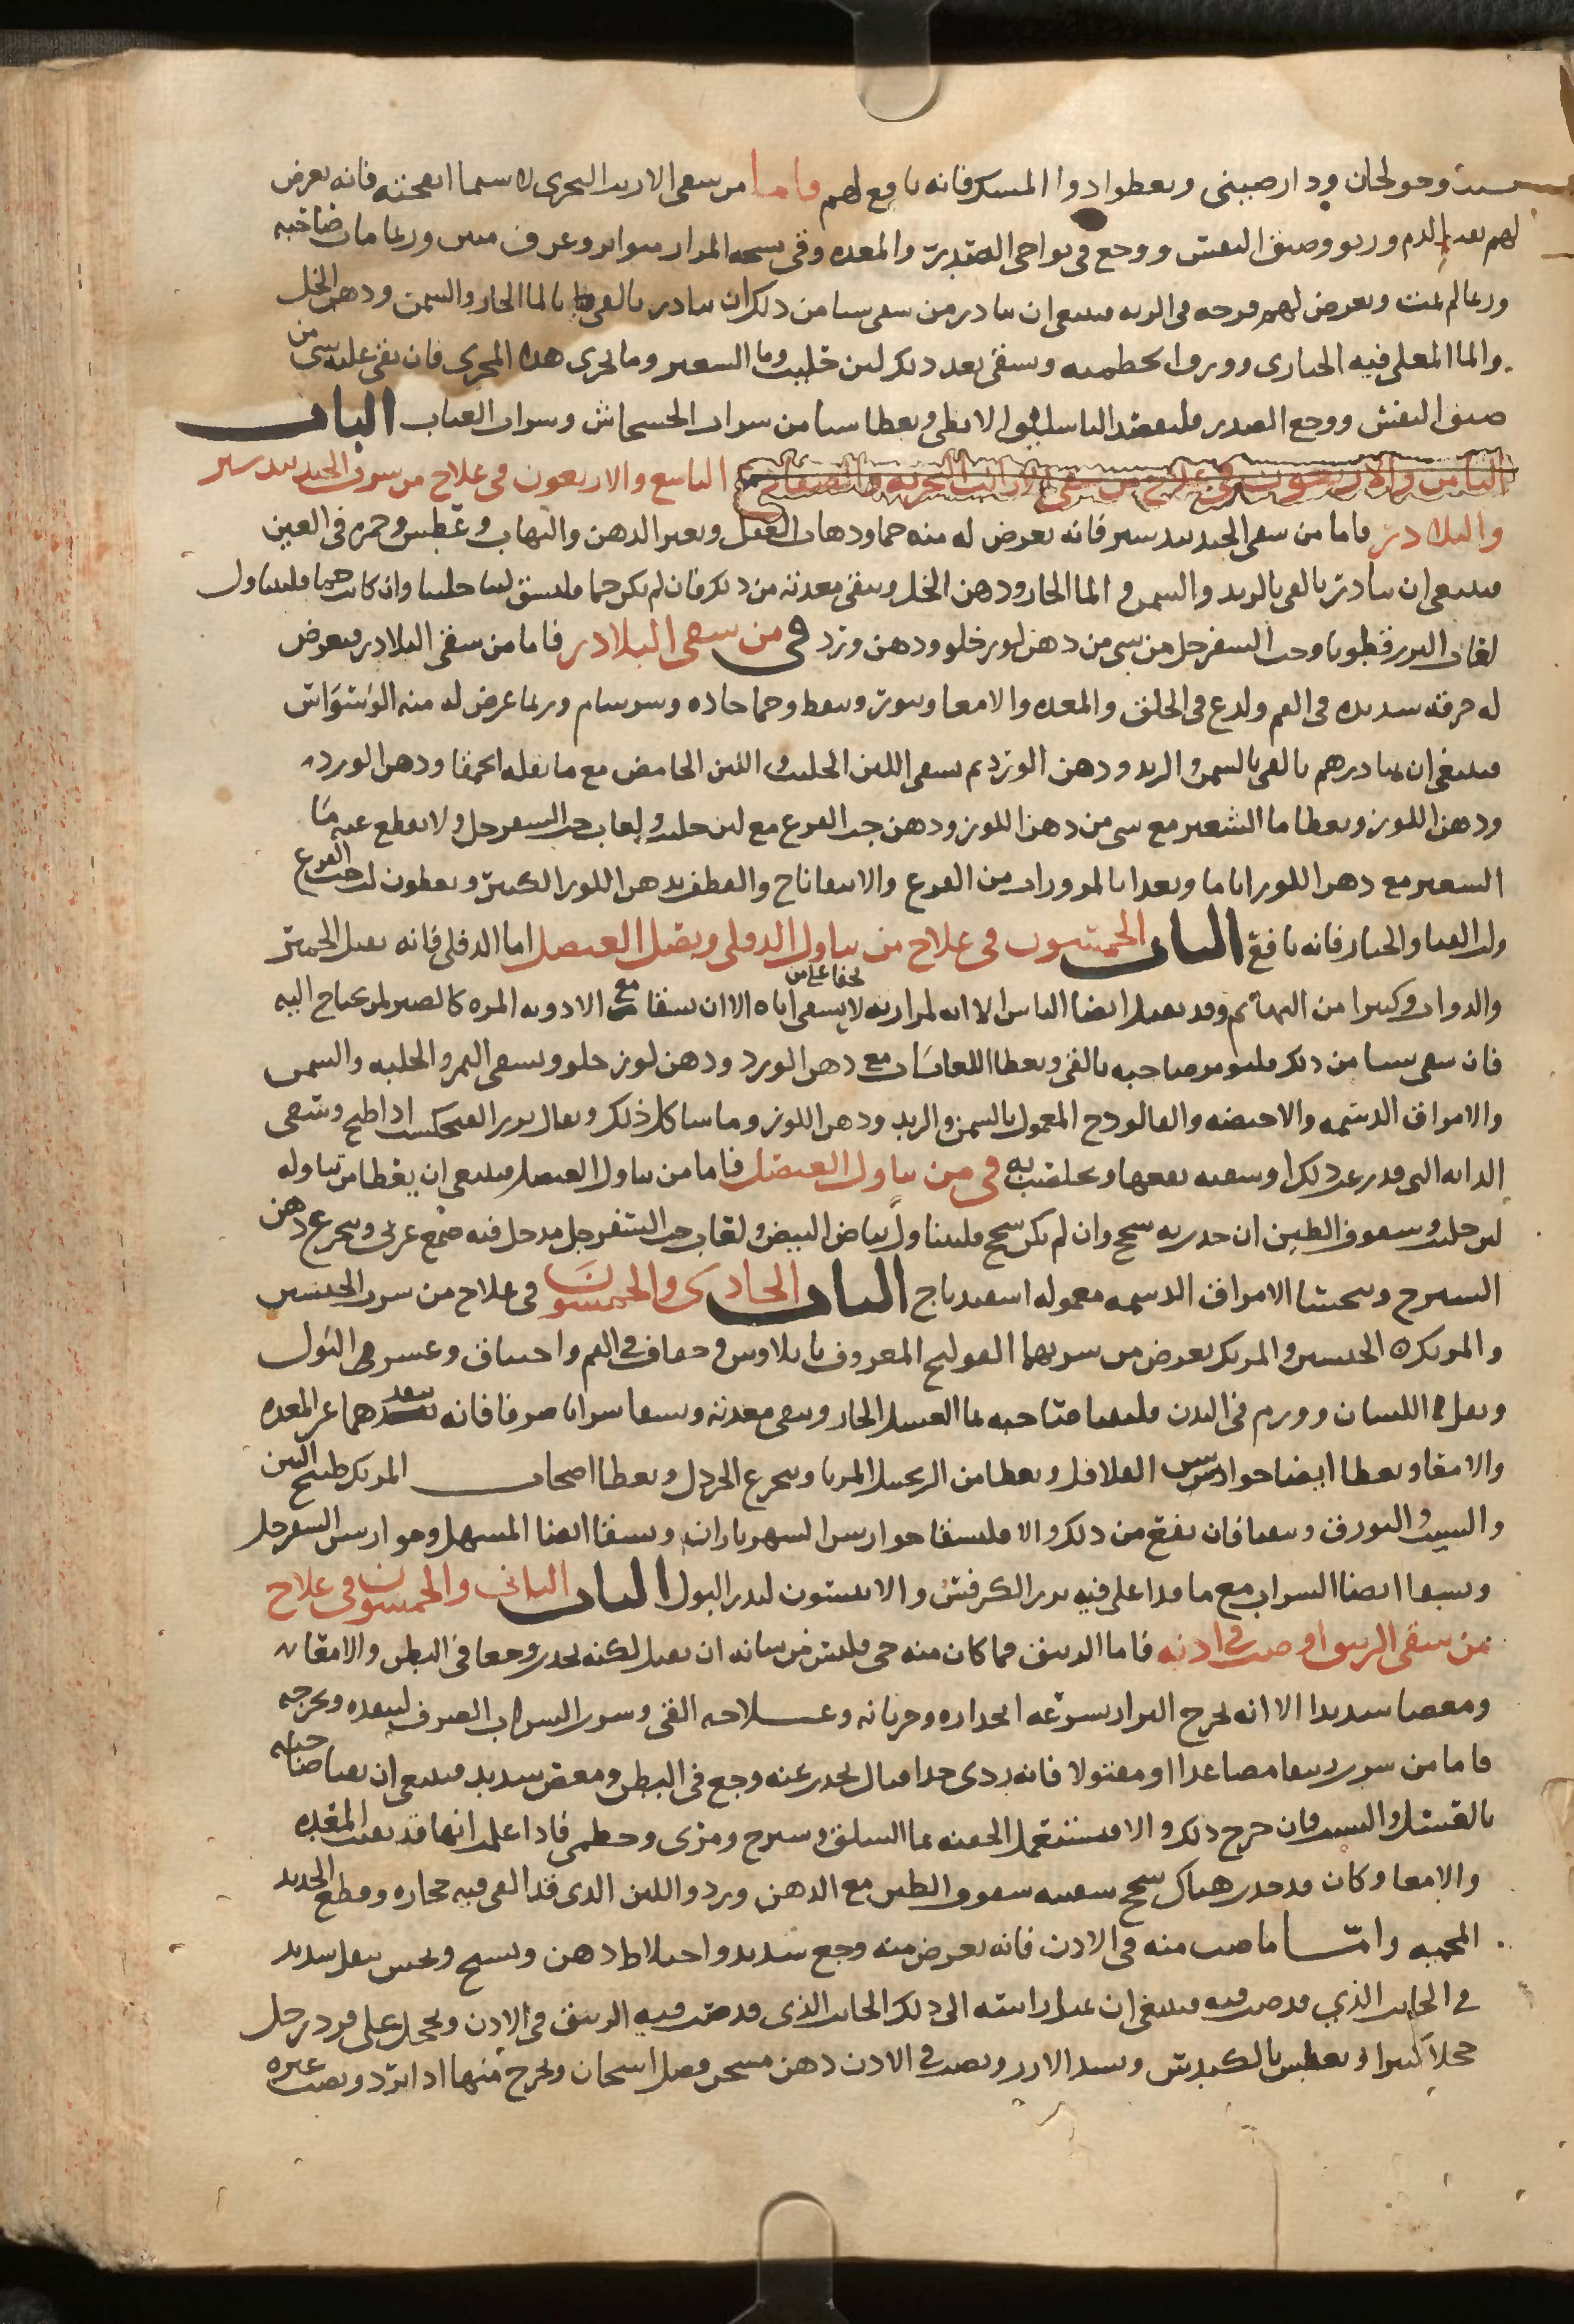 وخولنجان ودارصيني ويعطوا دوا المسك فانه نافع لهم واما من سقى الارنب البحرى لا سيما انفحته فانه يعرض
لهم نفث الدم وربو وضيق النفس ووجع فى نواحى الصدر والمعده وقى يشبه المرار متواتر وعرق منتن وربما مات صاحبه
وربما لم يمت ويعرض لهم قرحه فى الريه فينبغى ان يبادر من سقى شيا من ذلك ان يبادر بالقى بالما الحار والسمن ودهن الخل
والما المغلى فيه الخبازى وورق الخطميه ويسقى بعد ذلك لبن حليب وما الشعير وما يجرى هذا المجرى فان بقى عليه شى من
ضيق النفس ووجع الصدر فليفصد الباسليق الابطى ويعطا شيا من شراب الخشخاش وشراب العناب الباب
التاسع والاربعون فى علاج من شرب الجندبيدستر
والبلادر فاما من سقى الجندبيدستر فانه يعرض له منه حما وذهاب العقل وتغير الذهن والتهاب وعطش وحمره فى العين
فينبغى ان يبادر بالقى بالزبد والسمن والما الحار ودهن الخل وينقى معدته من ذلك فان لم يكن حما فليسق لبنا حليبا وان كانت حما فليتناول
لعاب البزرقطونا وحب السفرجل مع شى من دهن لوز حلو ودهن ورد فى من سقى البلادر فاما من سقى البلادر فيعرض
له حرقه شديده فى الفم ولدع فى الحلق والمعده والامعا وبثور ونفط وحما حاده وسرسام وربما عرض له منه الوسواس
فينبغى ان يبادرهم بالقى بالسمن والزبد ودهن الورد ثم يسقى اللبن الحليب واللبن الحامض مع ما بقله الحمقا ودهن الورد
ودهن اللوز ويعطا ما الشعير مع شى من دهن اللوز ودهن حب القرع مع لبن حليب ولعاب حب السفرجل ولا يقطع عنه ما
الشعير مع دهن اللوز اياما ويغدا بالمزورات من القرع والاسفاناخ والقطف بدهن اللوز الكثير ويعطون لب حب القرع
ولب القثا والخيار فانه نافع الباب الخمسون فى علاج من تناول الدفلى وبصل العنصل اما الدفلى فانه يقتل الحمير
والدواب وكثيرا من البهائم وقد يقتل ايضا الناس الا انه لمرارته لا يسقى اياه الا ان يسقا مع الادويه المره كالصبر لمن يحتاج اليه
فان سقى شيا من ذلك فليومر صاحبه بالقى ويعطا اللعابات مع دهن الورد ودهن لوز حلو ويسقى التمر والحلبه والسمن
والامراق الدسمه والاحصه والفالودج المعمول بالسمن والزبد ودهن اللوز وما شاكل ذلك ويقال بزر الفنجكشت اذا طبخ وسقى
الدابه التى قدر عن ذلك او سقيه نفعها ويحلصت به فى من تناول العنصل فاما من تناول العنصل فينبغى ان يعطا من تناوله
لبن حليب وسفوف الطين ان حدث به سحج وان لم يكن سحج فليتناول بياض البيض ولعاب حب السفرجل مدخل فيه صمغ عربى ويجرع دهن
الشيرج ويتحسا الامراق الدسمه معموله اسفيدباج الباب الحادى والخمسون فى علاج من شرب الجبسين
والمرتك ٥ الجبسين والمرتك يعرض من شربهما القولنج المعروف بايلاوس وجفاف فى الفم واختناق وعسر فى البول
وثقل فى اللسان وورم فى البدن فليقيا صاحبه بما العسل الحار وينقى معدته ويسقا شرابا صرفا فانه يبعدهما عن المعده
والامعا ويعطا ايضا جوارش الفلافل ويعطا من الزنجبيل المربا ويتجرع الخردل ويعطا اصحاب المرتك طبيخ التين
والشبت والبورق ويقيا فان نفع من ذلك والا فليسقا جوارش الشهرياران ويسقا ايضا المسهل وجوارش السفرجل
ويسقا ايضا الشراب مع ما قد اغلى فيه بزر الكرفس والانيسون ليدر البول الباب الثانى والخمسون فى علاج
من سقى الزيبق او صب فى اذنه فاما الزيبق فما كان منه حى فليس من شانه ان يقتل لكنه يحدث وجعا فى البطن والامعا
ومغصا شديدا الا انه يخرج البراز بسرعه انحداره وجريانه وعلاجه القى وشرب الشراب الصرف ليبعده ويخرجه
فاما من شرب زيبقا مصاعدا او مقتولا فانه ردى جدا قتال يحدث عنه وجع فى البطن ومغص شديد فينبغى ان يقيا صاحبه
بالعسل والشبت فان خرج ذلك والا فيستعمل الحقنه بما السلق وشيرج ومرى وخطمى فاذا علم انها قد نقت المعده
والامعا وكان قد حدث هناك سحج سقيته سفوف الطين مع الدهن ورد واللبن الذى قد القى فيه حجاره وقطع الحديد
المحميه واما ما صب منه فى الاذن فانه يعرض منه وجع شديد واختلاط ذهن وتشنج ويحس بثقل شديد
فى الجانب الذى قد صب فيه فينبغى ان يميل راسه الى ذلك الجانب الذى قد صب فيه الزيبق فى الاذن ويحجل على فرد رجل
حجلا كثيرا ويعطس بالكندس ويسد الانف ويصب فى الاذن دهن مسخن فضل اسخان ويخرج منها اذا برد ويصب غيره